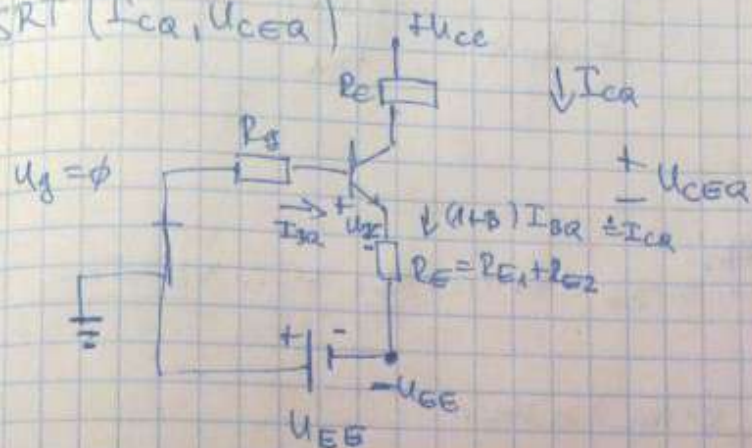 SRT (ICQ, UCEQ)
+UCC
RC
ICQ
Rg
Ug = ϕ
+
UCEQ
-
IBQ
+
-
(1+B) IBQ ≐ ICQ
RE = RE1 + RE2
+ -
-UEE
UEE